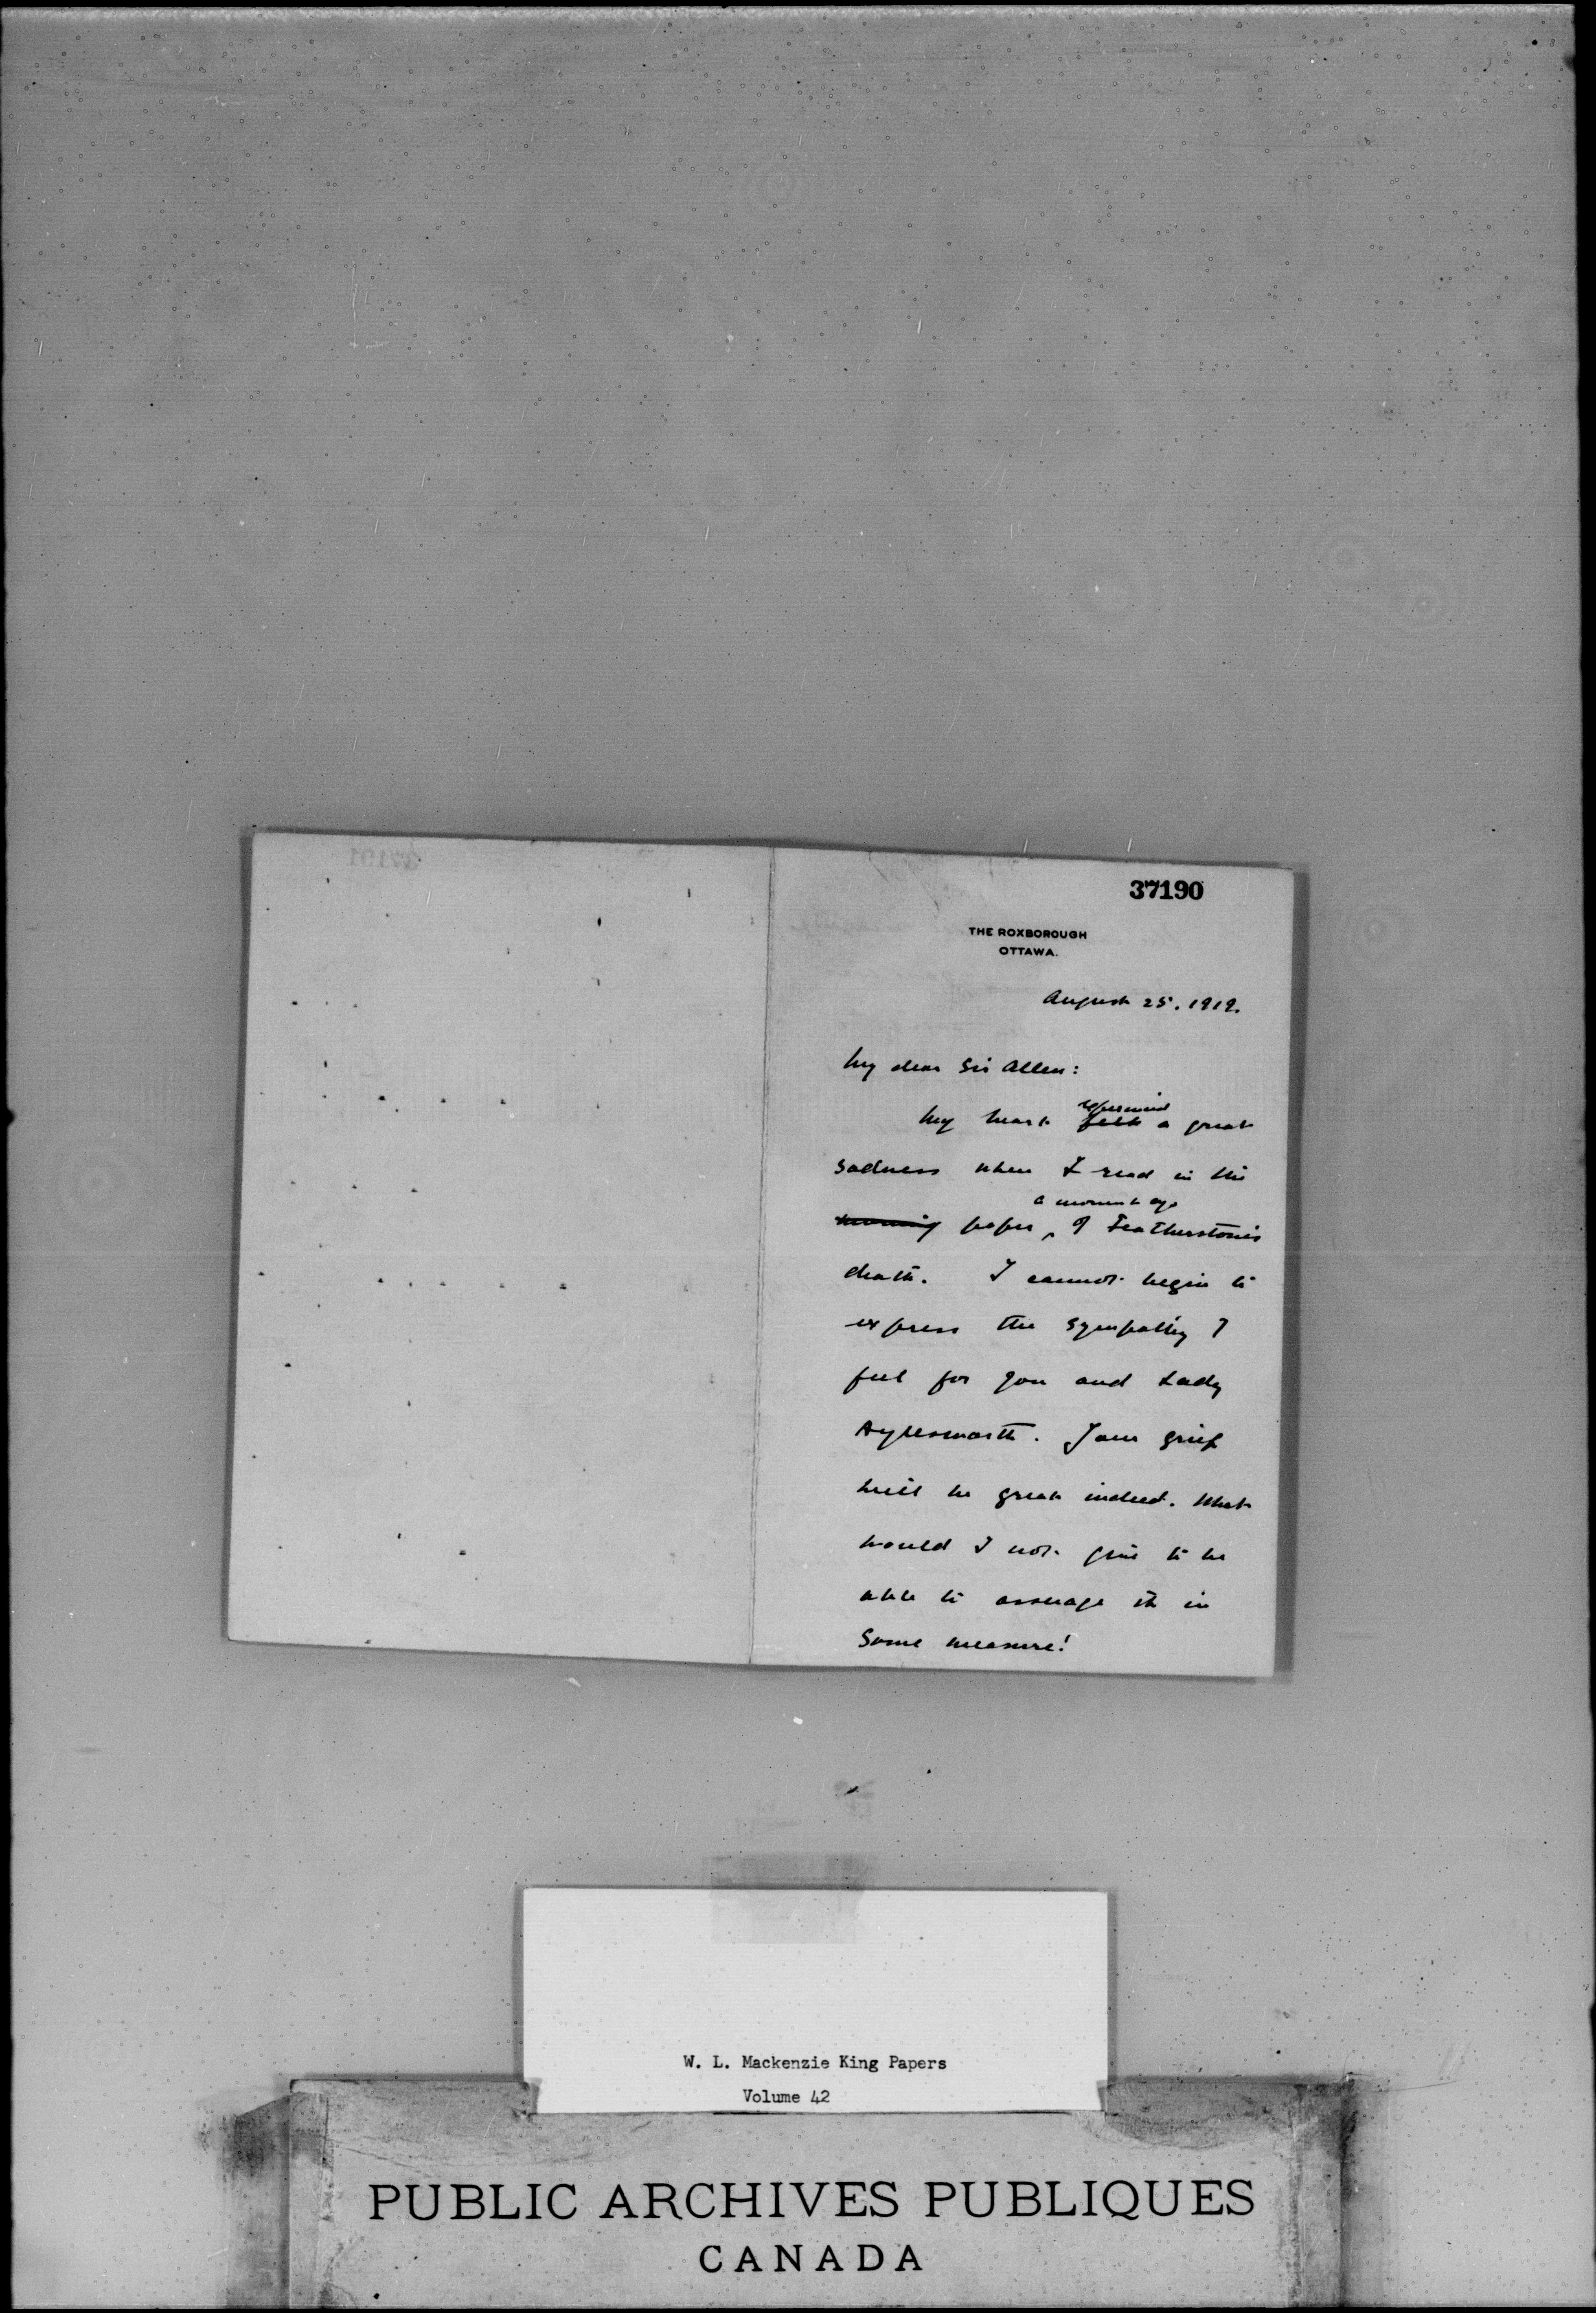 37190
THE ROXBOROUGH
OTTAWA.
August 25. 1919.
My dear Sir Allen:
experienced
My heart felt a great
sadness when I read in the
a moment ago
morning paper, of Featherston's
death. I cannot begin to
express the sympathy I
feel for you and Lady
Aylesworth. Your grief
will be great indeed. What
would I not give to be
able to assuage it in
some measure!
W. L. Mackenzie King Papers
Volume 42
PUBLIC ARCHIVES PUBLIQUES
CANADA